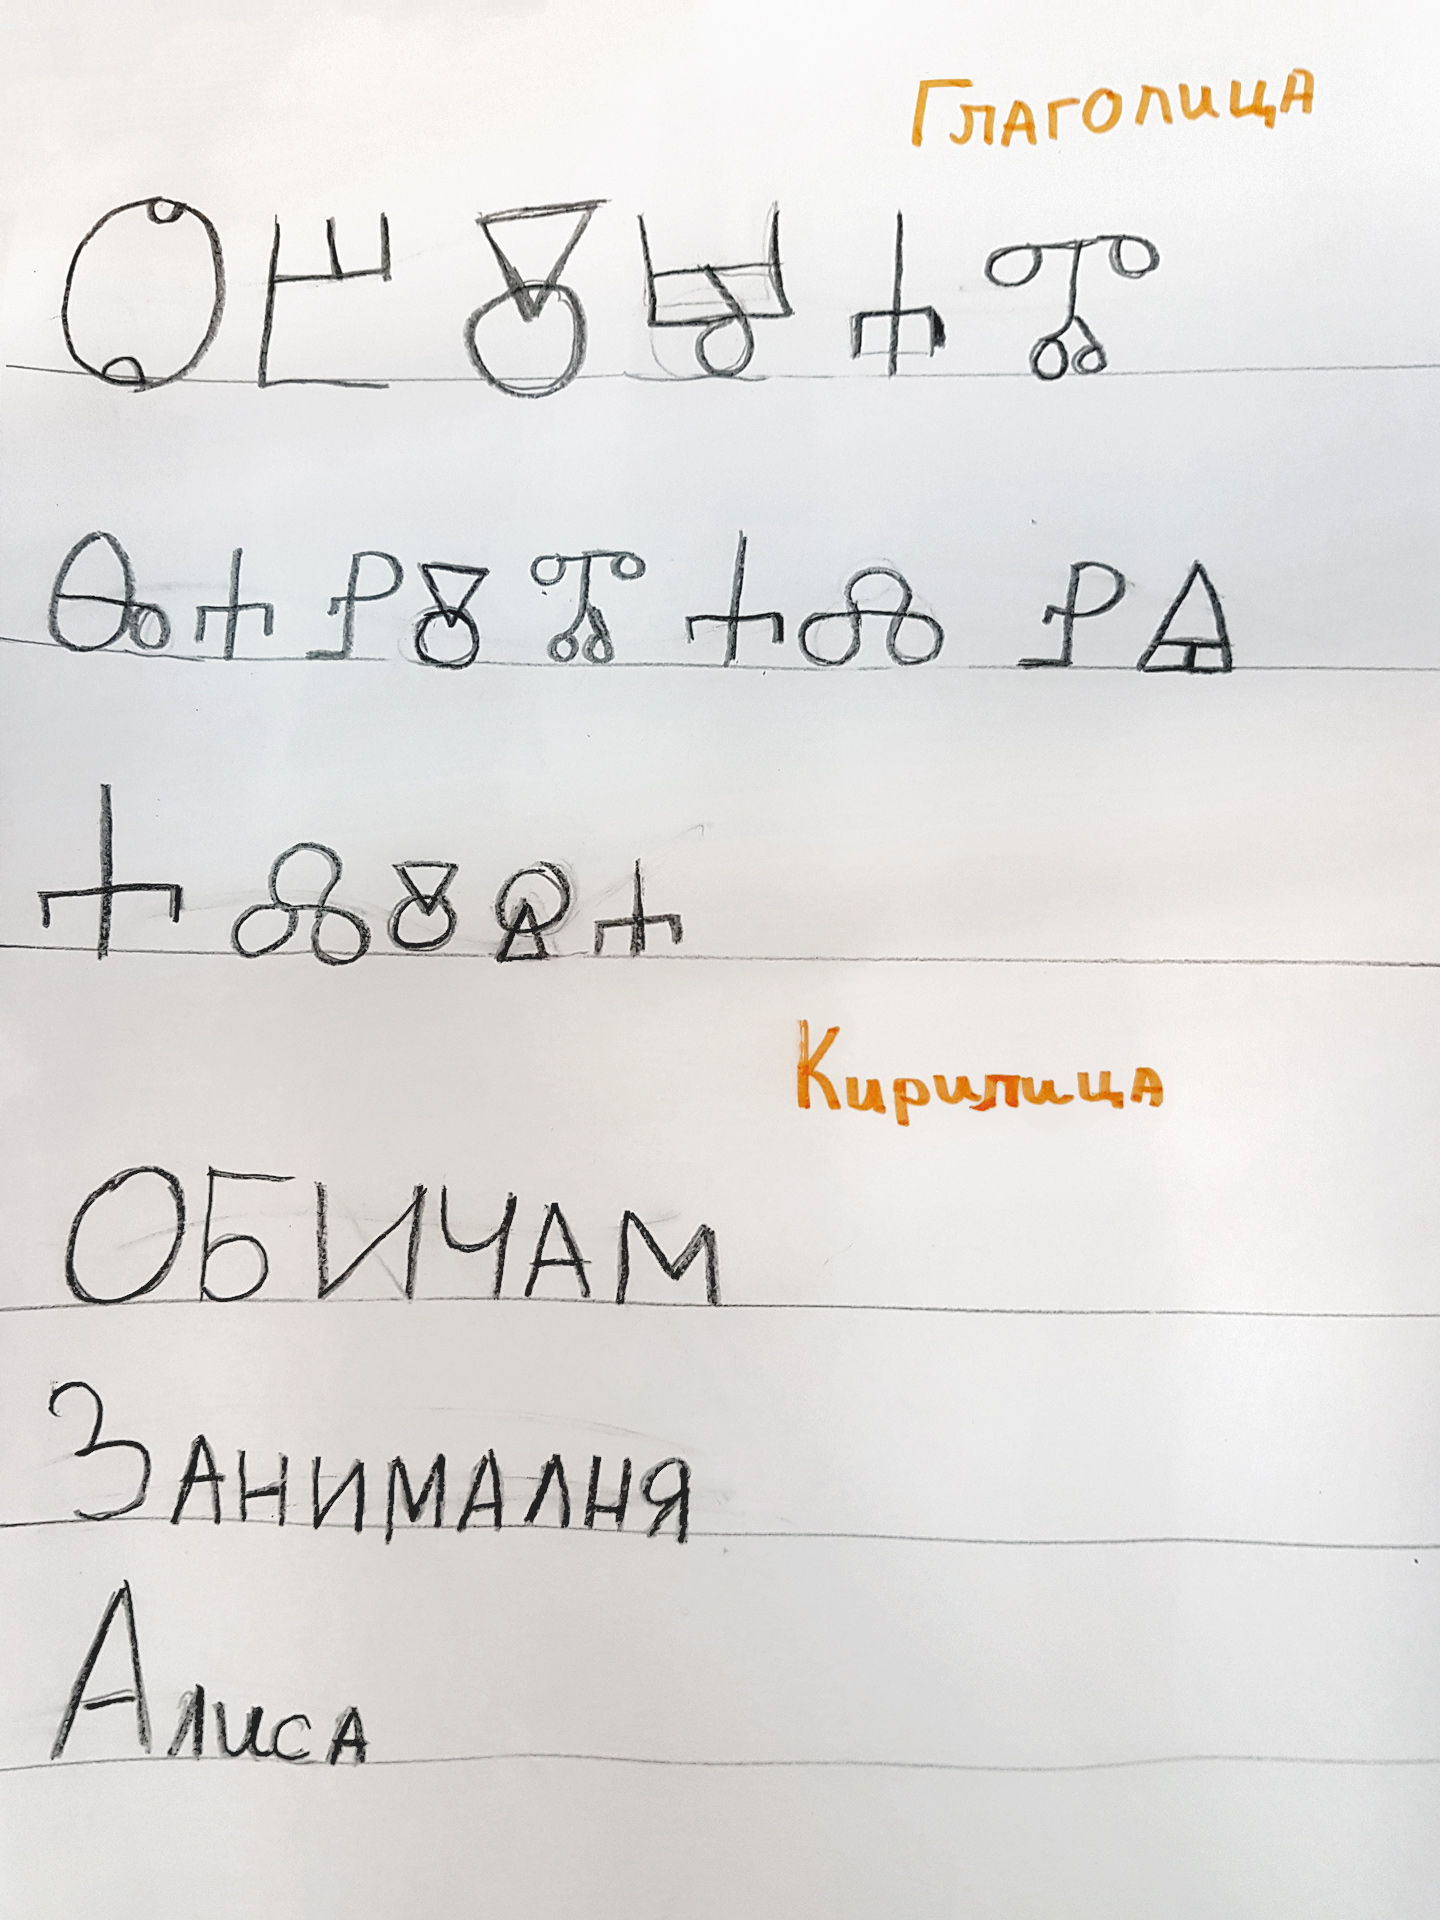 Глаголица
ⰑⰁⰋⰝⰀⰏ
ⰈⰀⰐⰋⰏⰀⰎⰐⰡ
ⰀⰎⰋⰔⰀ
Кирилица
ОБИЧАМ
ЗАНИМАЛНЯ
Алиса